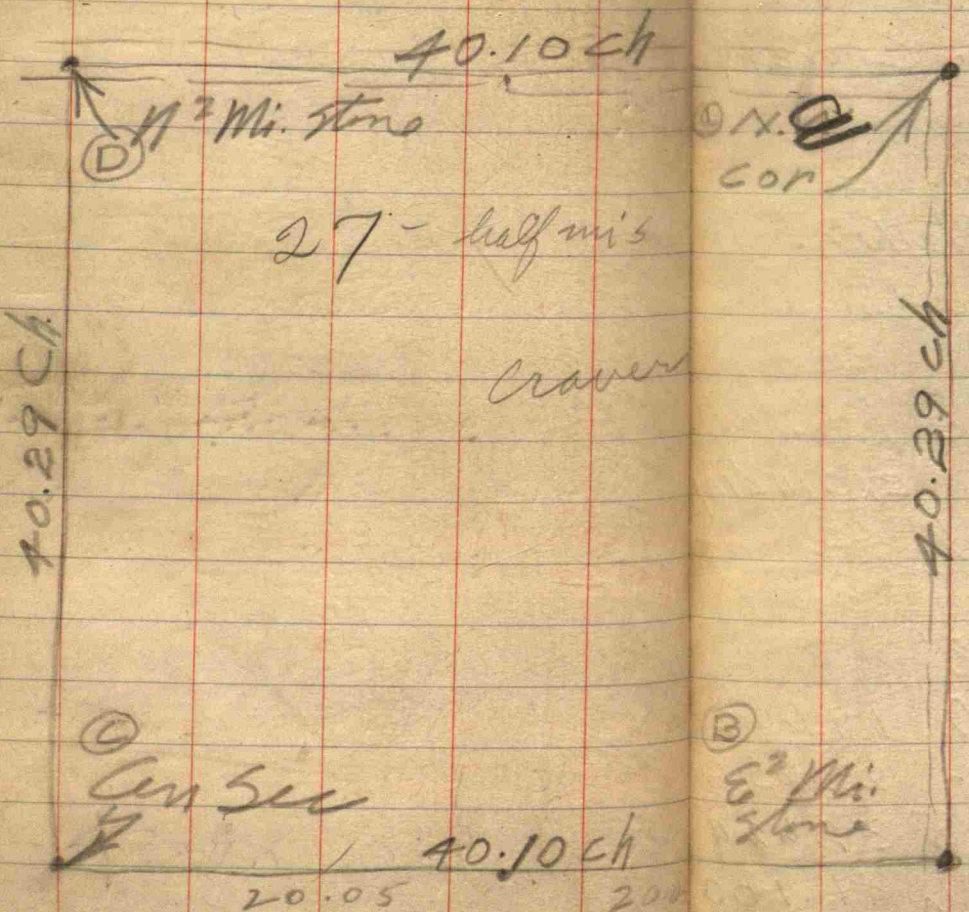 40.10 ch
Ⓓ N ½ Mi. Stone
N.
cor
27 - half mis
Craver
40.29 Ch
40.29 ch
Ⓒ
Cen Sec
Ⓑ
E ½ Mi.
Stone
40.10 ch
20.05